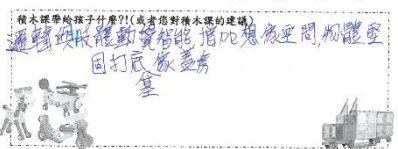 積木課帶給孩子什麼?!(或者您對積木課的建議)
邏輯 肢體動 智能,增加想像空間,物體堅
固打底 像蓋房
基